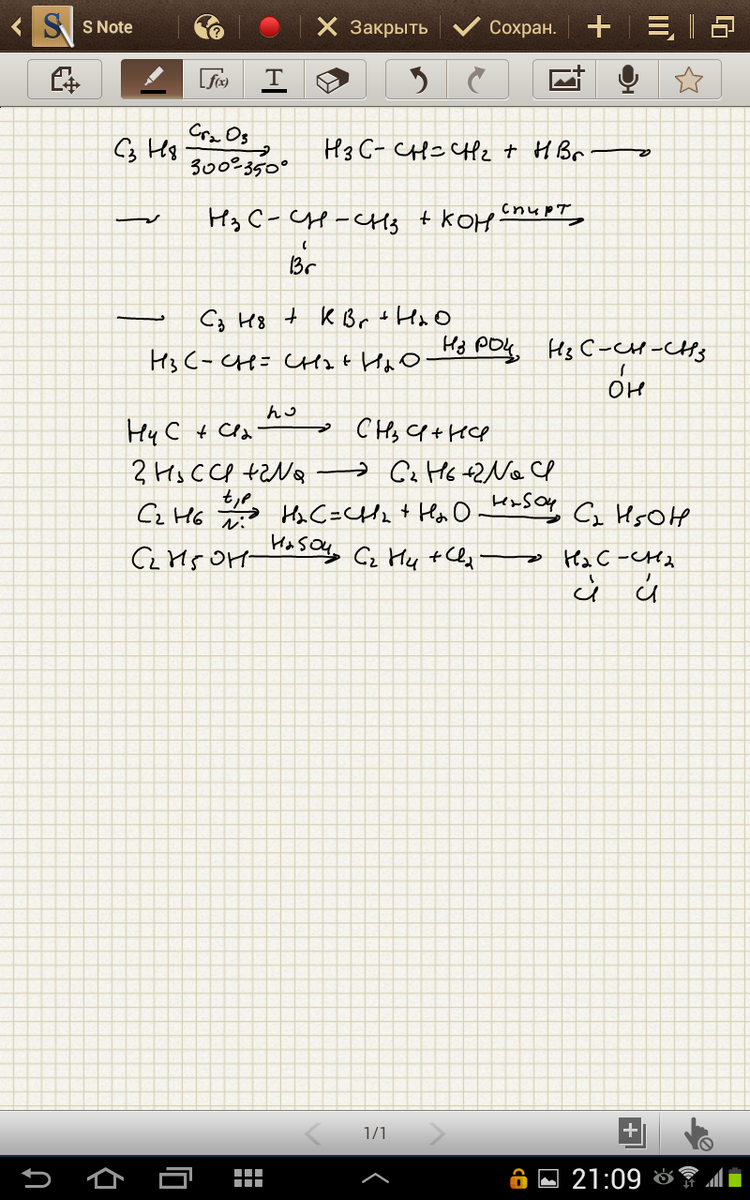 S Note Закрыть Сохран.
f(x) T
C3 H8 Cr2O3 300°-350° H3C-CH=CH2 + HBr →
→ H3C-CH-CH3 + KOH спирт →
Br
→ C3 H8 + KBr + H2O
H3C-CH=CH2 + H2O H3PO4 → H3C-CH-CH3
OH
H4C + Cl2 hν → CH3Cl + HCl
2H3CCl + 2Na → C2H6 + 2NaCl
C2H6 t,p Ni → H2C=CH2 + H2O H2SO4 → C2H5OH
C2H5OH H2SO4 → C2H4 + Cl2 → H2C-CH2
Cl Cl
1/1
21:09